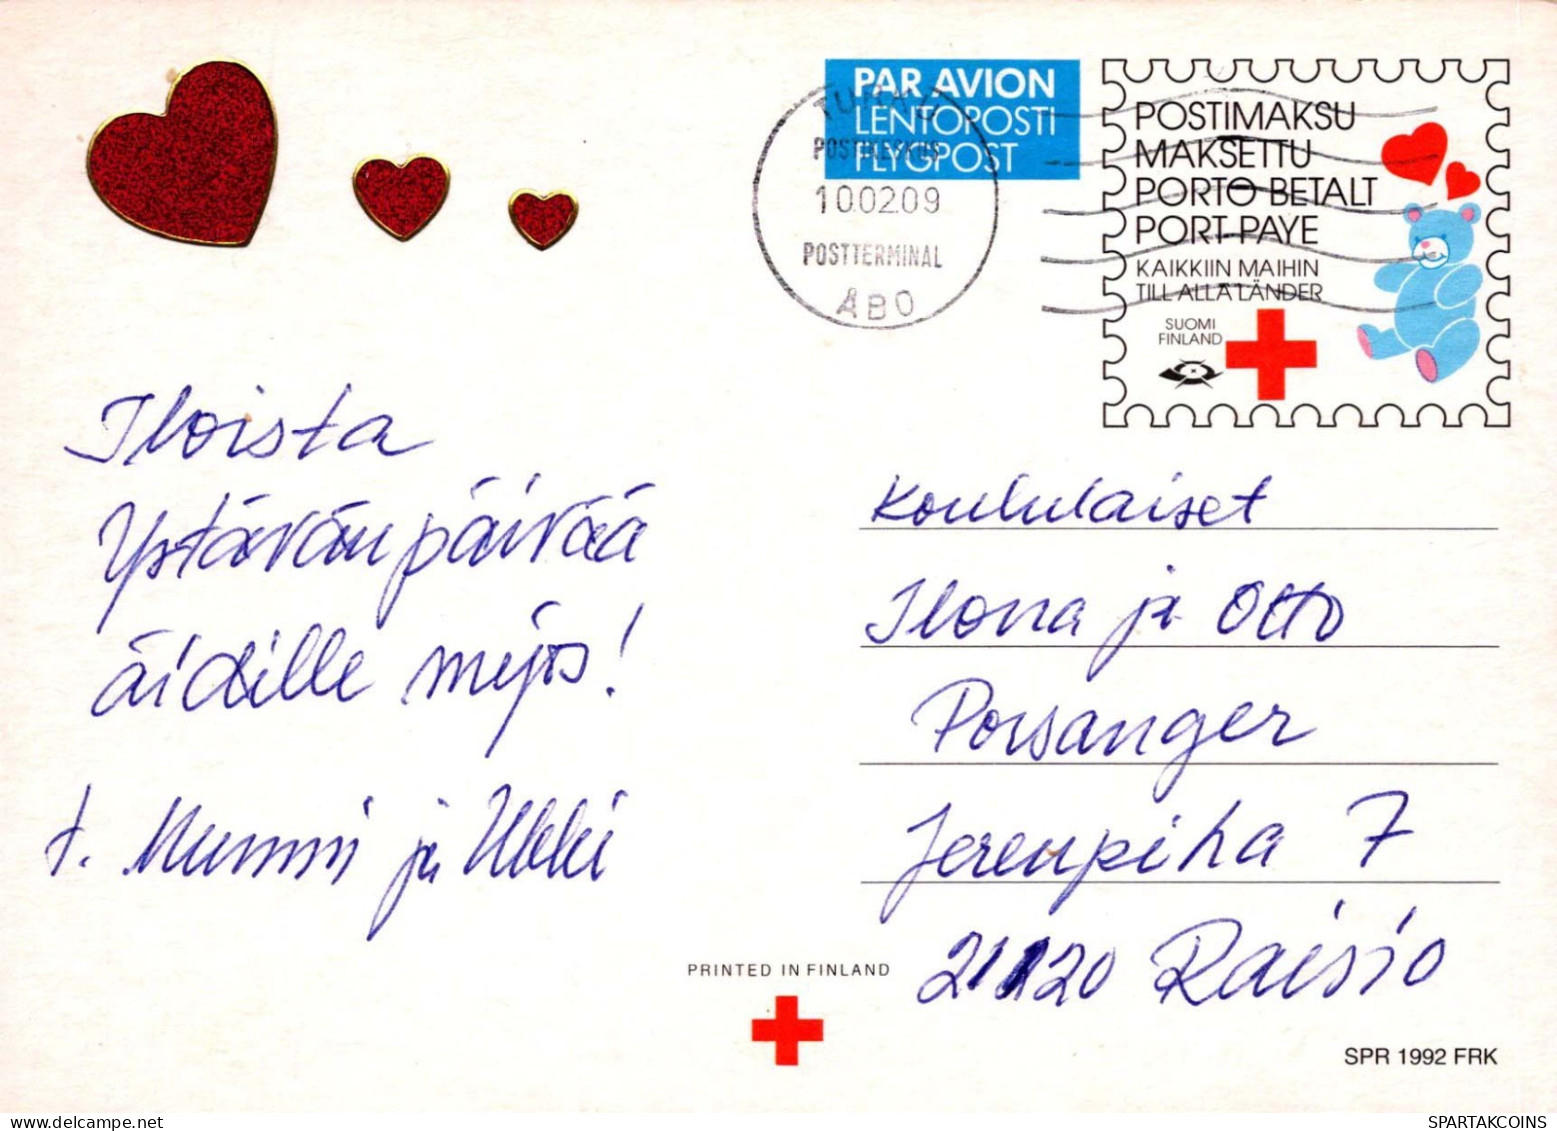 PAR AVION
LENTOPOSTI
FLYGPOST
TURKU
POSTIKESKUS
10.02.09
POSTTERMINAL
ÅBO
POSTIMAKSU
MAKSETTU
PORTO BETALT
PORT PAYE
KAIKKIIN MAIHIN
TILL ALLA LÄNDER
SUOMI
FINLAND
Iloista
Ystävänpäivää
äidille myös!
t. Mummi ja Ukki
Koululaiset
Ilona ja Otto
Porsanger
Jerenpiha 7
21120 Raisio
PRINTED IN FINLAND
SPR 1992 FRK
SPARTAKCOINS